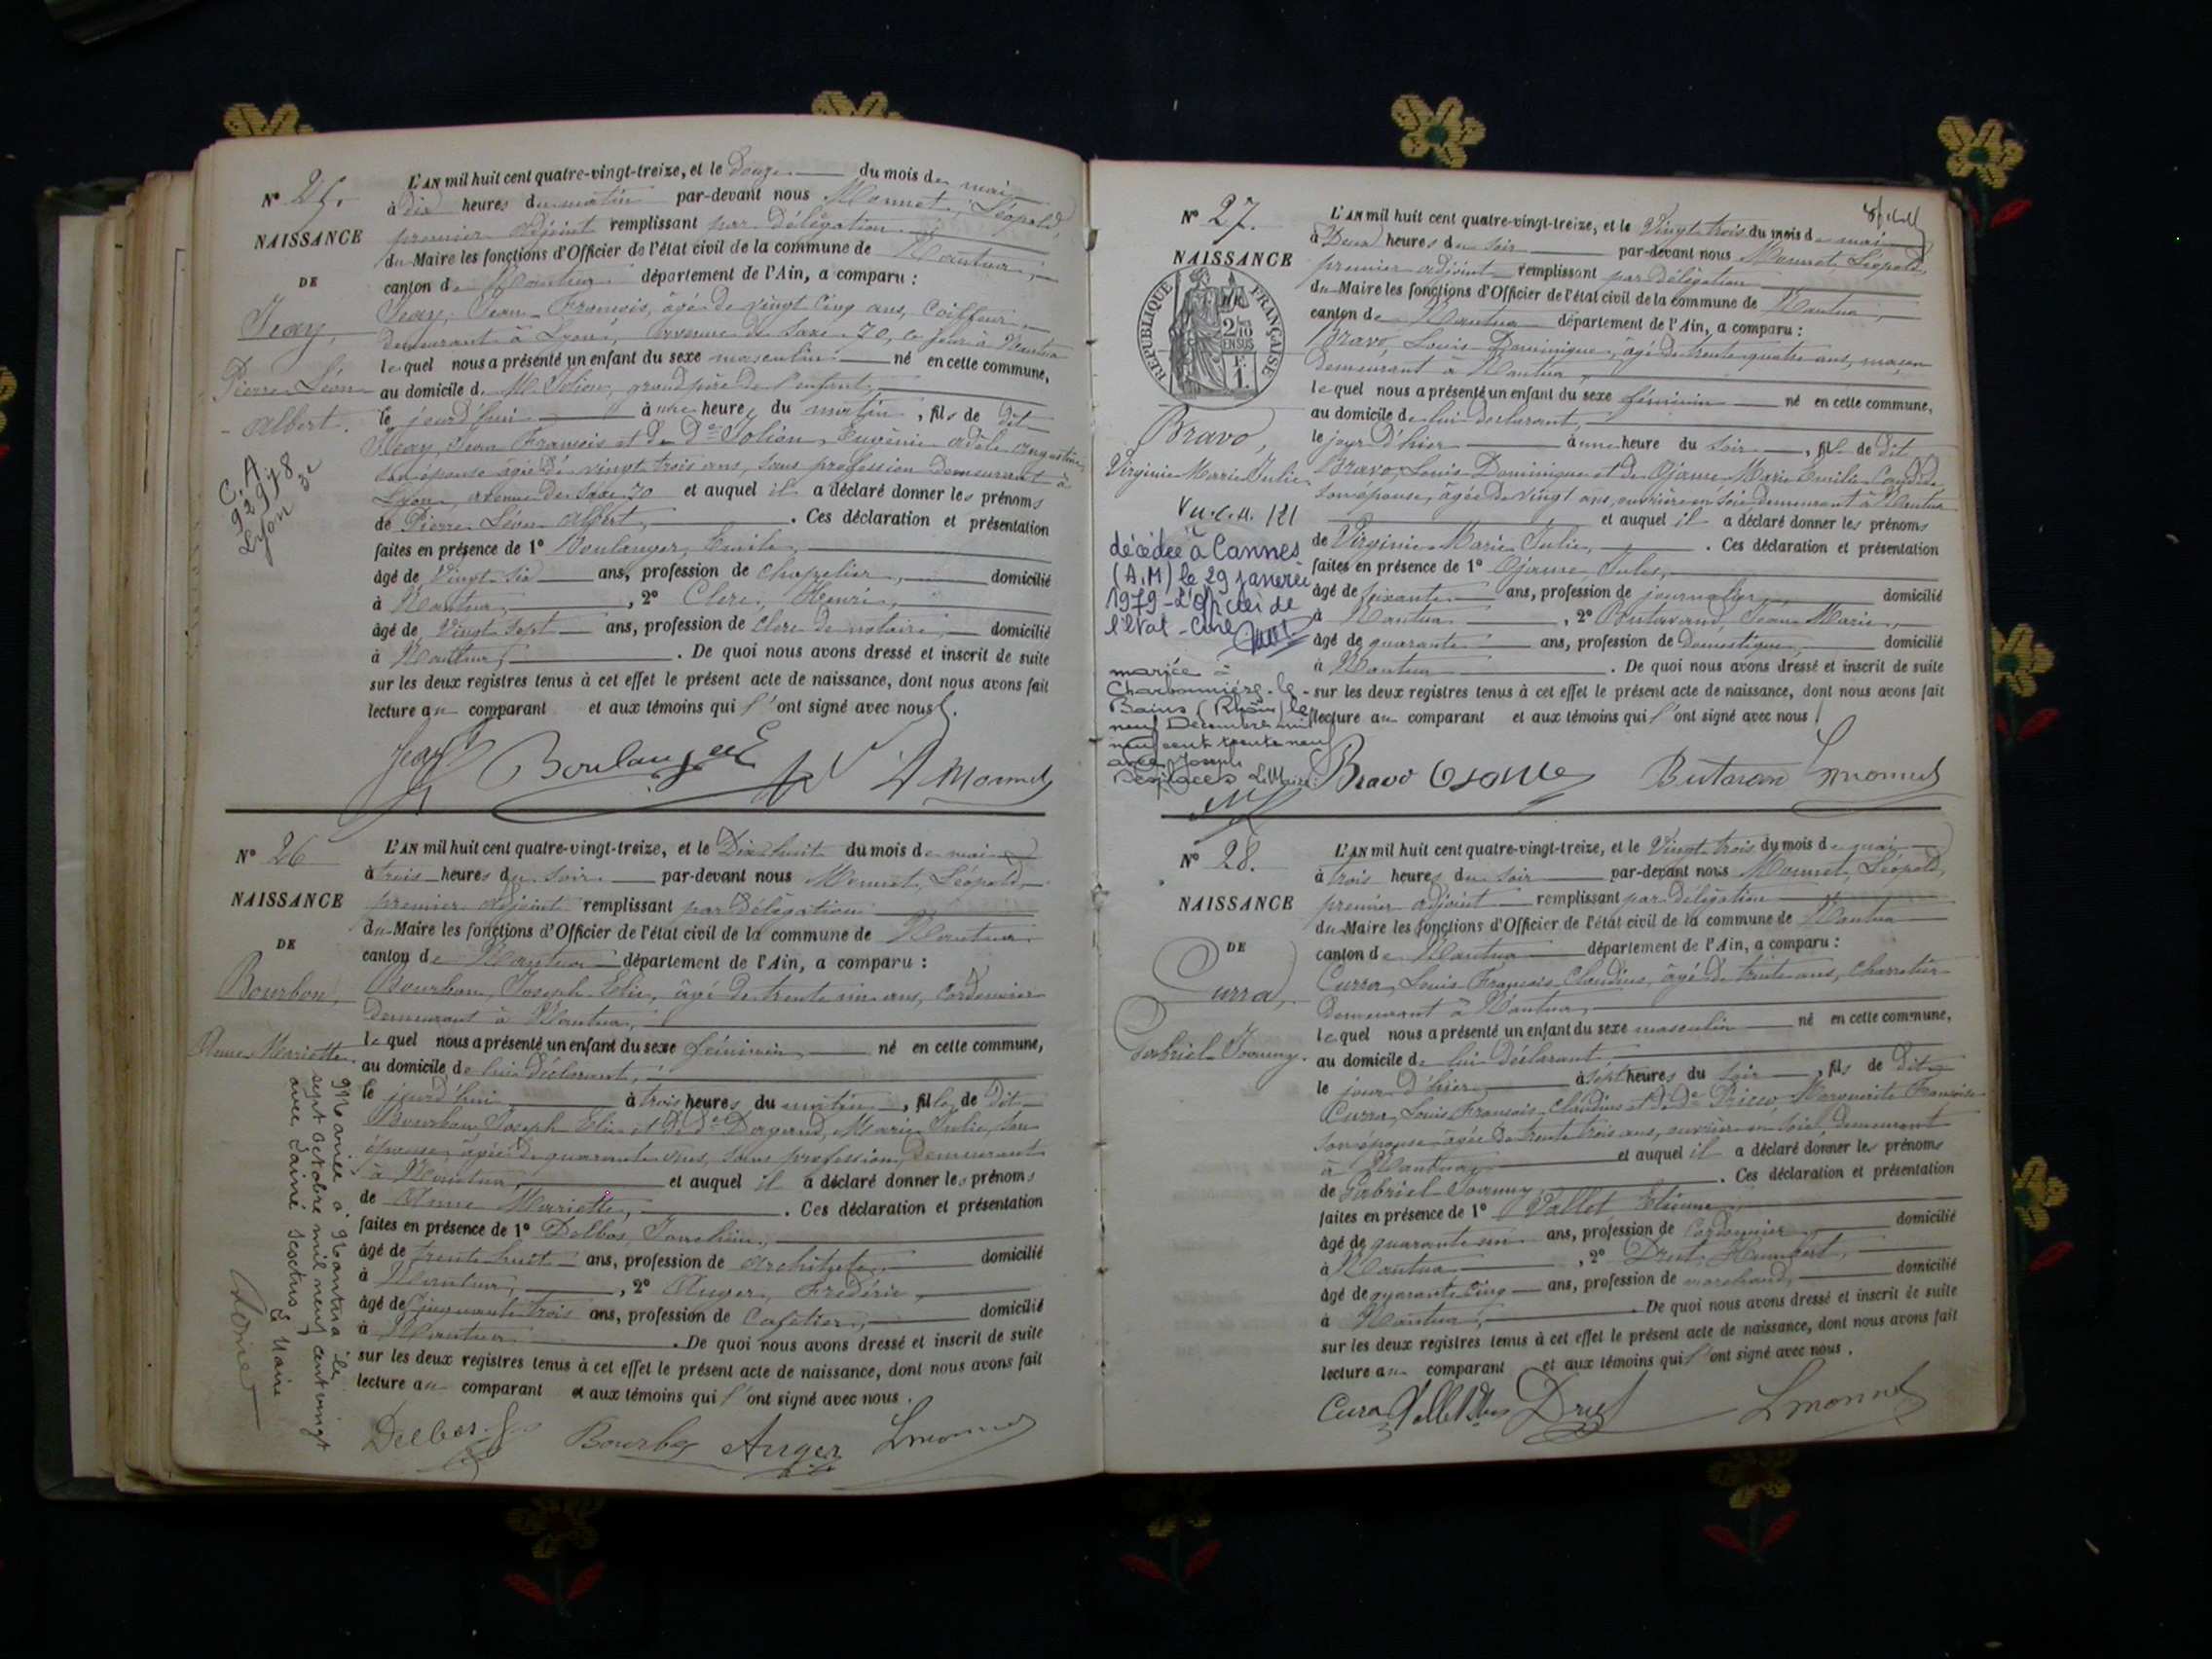 N° 25.
NAISSANCE
DE
Jeay,
Pierre Léon
Albert.
C. A.
92978
Lyon 3e
L'AN mil huit cent quatre-vingt-treize, et le Douze du mois de mai
à dix heures du matin par-devant nous Monnet, Léopold,
premier adjoint remplissant par délégation
du Maire les fonctions d'Officier de l'état civil de la commune de Nantua,
canton de Nantua département de l'Ain, a comparu :
Jeay, Jean François, âgé de vingt cinq ans, Coiffeur
demeurant à Lyon, avenue de Saxe 70, ce jour à Nantua
lequel nous a présenté un enfant du sexe masculin né en cette commune,
au domicile de M. Jolion, grand père de l'enfant,
le jourd'hui à une heure du matin, fils de dit
Jeay, Jean François et de De Jolion, Eugénie adèle Augustine
son épouse âgée de vingt trois ans, sans profession demeurant à
Lyon, avenue de Saxe 70 et auquel il a déclaré donner les prénoms
de Pierre Léon Albert, . Ces déclaration et présentation
faites en présence de 1° Boulanger, Emile,
âgé de Vingt six ans, profession de chapelier, domicilié
à Nantua, , 2° Clerc, Henri,
âgé de Vingt sept ans, profession de Clerc de notaire, domicilié
à Nantua, . De quoi nous avons dressé et inscrit de suite
sur les deux registres tenus à cet effet le présent acte de naissance, dont nous avons fait
lecture au comparant et aux témoins qui l'ont signé avec nous.
Jeay Boulanger L Monnet
N° 26
NAISSANCE
DE
Bourbon,
Anne Mariette
Mariée à Nantua le
sept octobre mil neuf cent vingt
avec Lainé
Le Maire
L'AN mil huit cent quatre-vingt-treize, et le Dix huit du mois de mai
à trois heures du soir par-devant nous Monnet, Léopold
premier adjoint remplissant par délégation
du Maire les fonctions d'Officier de l'état civil de la commune de Nantua
canton de Nantua département de l'Ain, a comparu :
Bourbon, Joseph Elie, âgé de trente cinq ans, Cordonnier
demeurant à Nantua,
lequel nous a présenté un enfant du sexe féminin né en cette commune,
au domicile de lui déclarant,
le jourd'hui à trois heures du matin, fille de Dit
Bourbon, Joseph Elie et de De Marie Julie, son
épouse, âgée de quarante ans, sans profession, demeurant
à Nantua, et auquel il a déclaré donner les prénoms
de Anne Mariette, . Ces déclaration et présentation
faites en présence de 1° Delbos, Joachim,
âgé de trente huit ans, profession de architecte, domicilié
à Nantua, , 2° Auger, Frédéric,
âgé de Cinquante trois ans, profession de Cafetier, domicilié
à Nantua . De quoi nous avons dressé et inscrit de suite
sur les deux registres tenus à cet effet le présent acte de naissance, dont nous avons fait
lecture au comparant et aux témoins qui l'ont signé avec nous.
Delbos J. Bourbon Auger L monnet
N° 27.
NAISSANCE
RÉPUBLIQUE FRANÇAISE
2/10
EN SUS
1 F.
Bravo,
Virginie Marie Julie.
décédée à Cannes
(A.M) le 29 janvier
1979 - L'officier de
l'état-civil
mariée à
Charbonnière-les-
Bains (Rhône) le
neuf Décembre mil
neuf cent trente neuf
avec Joseph
Le Maire
L'AN mil huit cent quatre-vingt-treize, et le Vingt trois du mois de mai
à Deux heures du soir par-devant nous Monnet, Léopold,
premier adjoint remplissant par délégation
du Maire les fonctions d'Officier de l'état civil de la commune de Nantua,
canton de Nantua département de l'Ain, a comparu :
Bravo, Louis Dominique, âgé de trente quatre ans, maçon
demeurant à Nantua,
lequel nous a présenté un enfant du sexe féminin né en cette commune,
au domicile de lui déclarant,
le jour d'hier à une heure du soir, fille de dit
Bravo, Louis Dominique et de Marie Emilie
son épouse, âgée de vingt ans, ouvrière en soie demeurant à Nantua
et auquel il a déclaré donner les prénoms
de Virginie Marie Julie, . Ces déclaration et présentation
faites en présence de 1° Jules,
âgé de soixante ans, profession de journalier, domicilié
à Nantua , 2° Butavand, Jean Marie,
âgé de quarante ans, profession de Domestique, domicilié
à Nantua . De quoi nous avons dressé et inscrit de suite
sur les deux registres tenus à cet effet le présent acte de naissance, dont nous avons fait
lecture au comparant et aux témoins qui l'ont signé avec nous
Bravo Butavan L monnet
N° 28.
NAISSANCE
DE
Curra,
Gabriel Joanny.
L'AN mil huit cent quatre-vingt-treize, et le Vingt trois du mois de mai
à trois heures du soir par-devant nous Monnet, Léopold,
premier adjoint remplissant par délégation
du Maire les fonctions d'Officier de l'état civil de la commune de Nantua
canton de Nantua département de l'Ain, a comparu :
Curra, Louis François Claudius, âgé de trente ans, charretier
demeurant à Nantua,
lequel nous a présenté un enfant du sexe masculin né en cette commune,
au domicile de lui déclarant
le jour d'hier à sept heures du soir, fils de dit
Curra, Louis François Claudius et de De Marguerite Françoise
son épouse âgée de trente trois ans, ouvrière en soie, demeurant
à Nantua, et auquel il a déclaré donner les prénoms
de Gabriel Joanny, . Ces déclaration et présentation
faites en présence de 1° Vallet, Etienne,
âgé de quarante un ans, profession de Cordonnier domicilié
à Nantua , 2° Druet, Humbert,
âgé de quarante cinq ans, profession de marchand, domicilié
à Nantua, . De quoi nous avons dressé et inscrit de suite
sur les deux registres tenus à cet effet le présent acte de naissance, dont nous avons fait
lecture au comparant et aux témoins qui l'ont signé avec nous.
Cura Vallet Druet L monnet